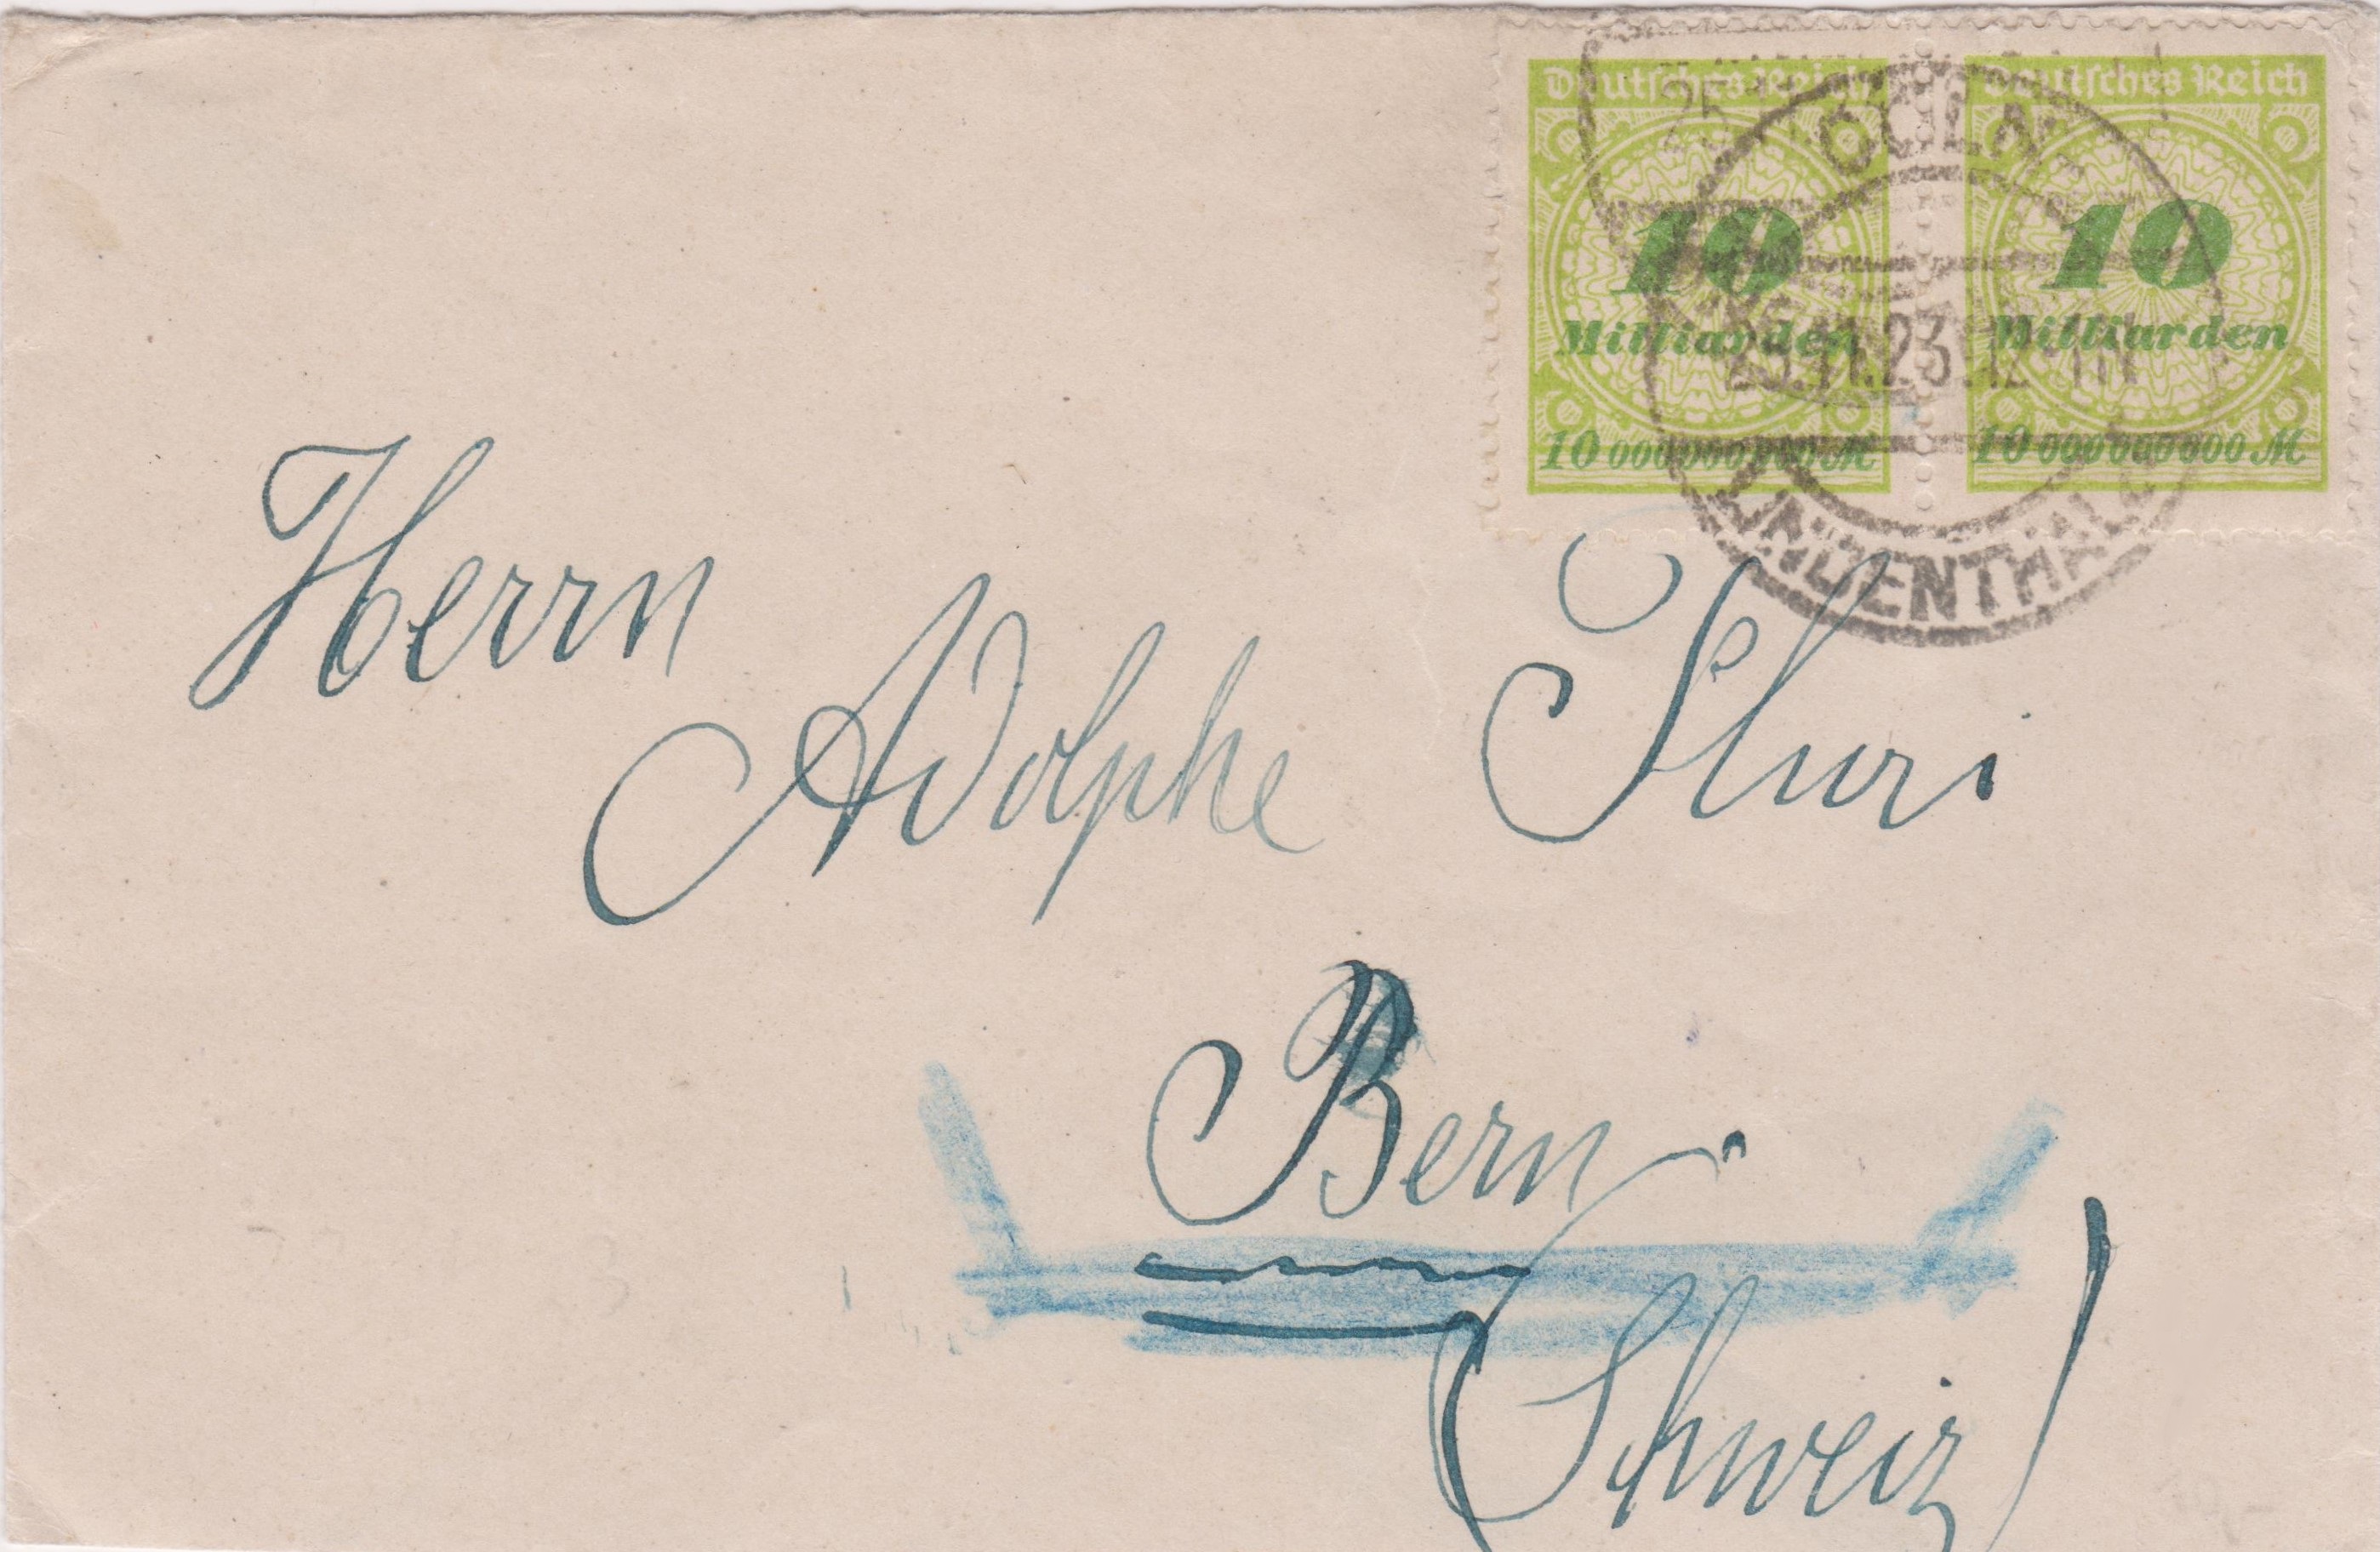 Deutsches Reich Deutsches Reich
10 10
Milliarden Milliarden
10 000 000 000 M 10 000 000 000 M
CÖLN
25.11.23.12-1N
LINDENTHAL
Herrn
Adolphe Thuri
Bern.
(Schweiz)